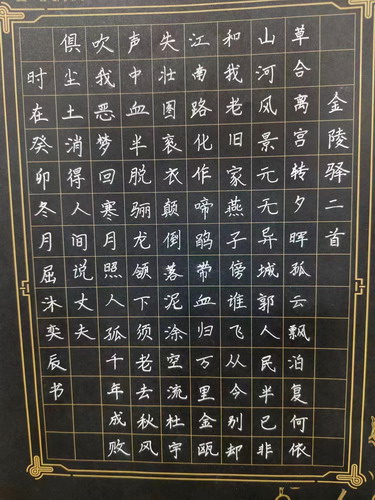 金陵驿二首
草合离宫转夕晖孤云飘泊复何依
山河风景元无异城郭人民半已非
和我老旧家燕子傍谁飞从今别却
江南路化作啼鹃带血归万里金瓯
失壮图衰衣颠倒落泥涂空流杜宇
声中血半脱骊龙领下须老去秋风
吹我恶梦回寒月照人孤千年成败
俱尘土消得人间说丈夫
时在癸卯冬月屈沐奕辰书